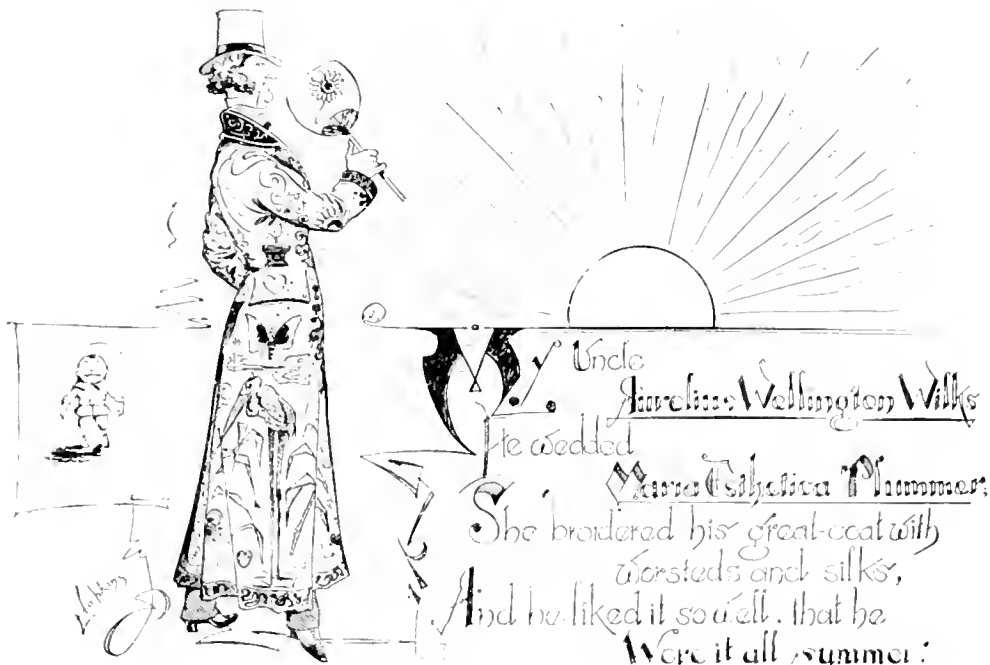 My Uncle
Aurelius Wellington Wilks
He wedded
Maria Esthetica Plummer;
She broidered his great-coat with
worsteds and silks,
And he liked it so well, that he
Wore it all summer!
Hopkins